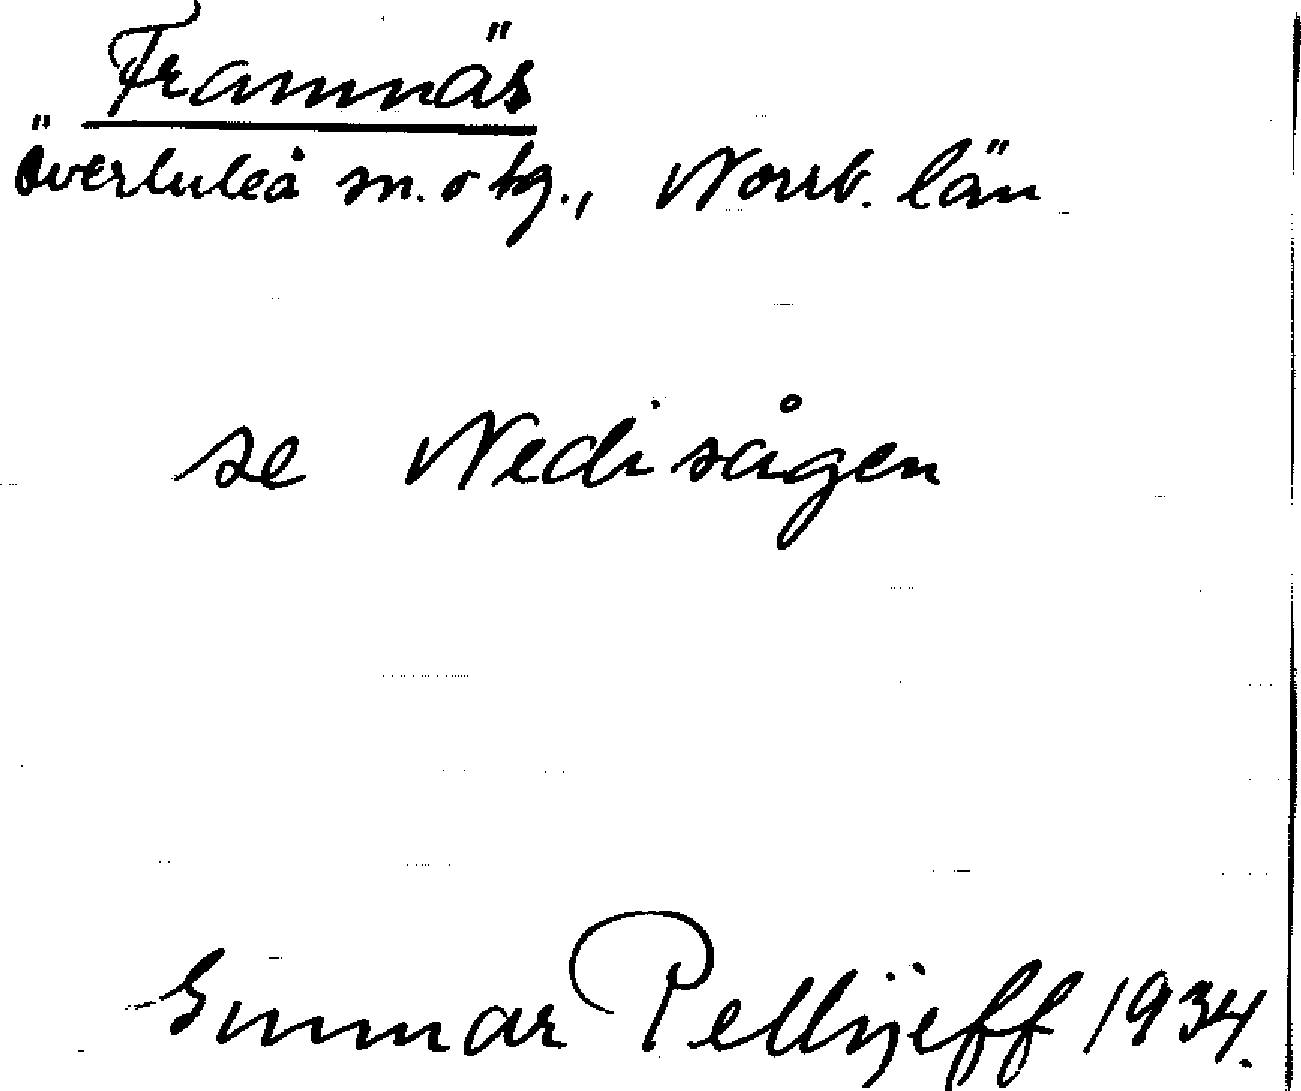 Framnäs
Överluleå sn. o tg., Norrb. län
se Nedisågen
Gunnar Pellijeff 1934.